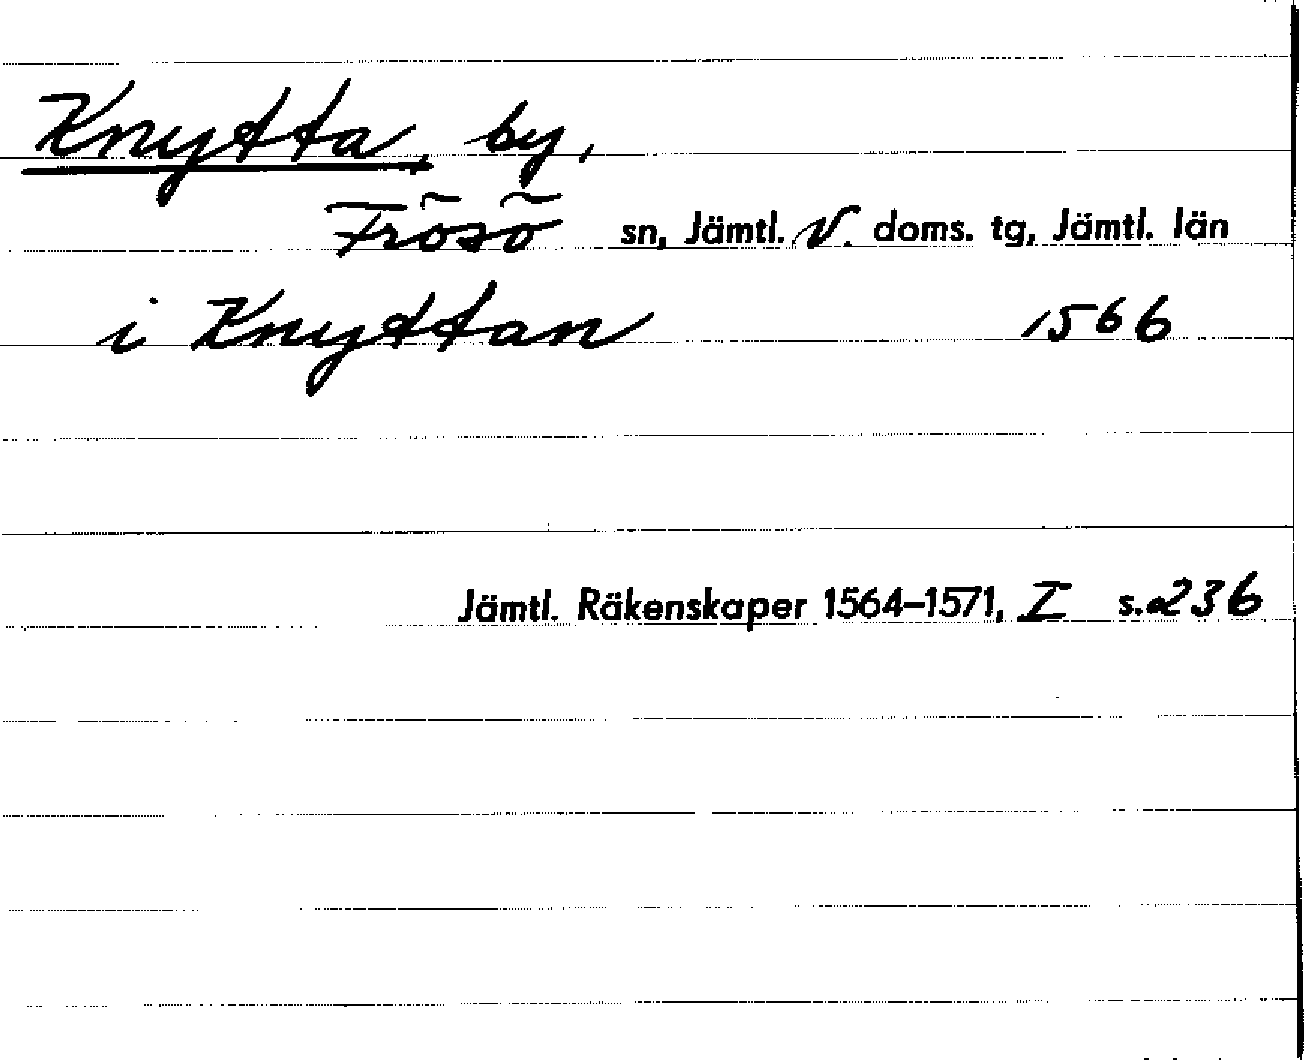 Knytta, by,
Frösö sn, Jämtl. V. doms. tg, Jämtl. län
i Knyttan 1566
Jämtl. Räkenskaper 1564–1571, I s. 236